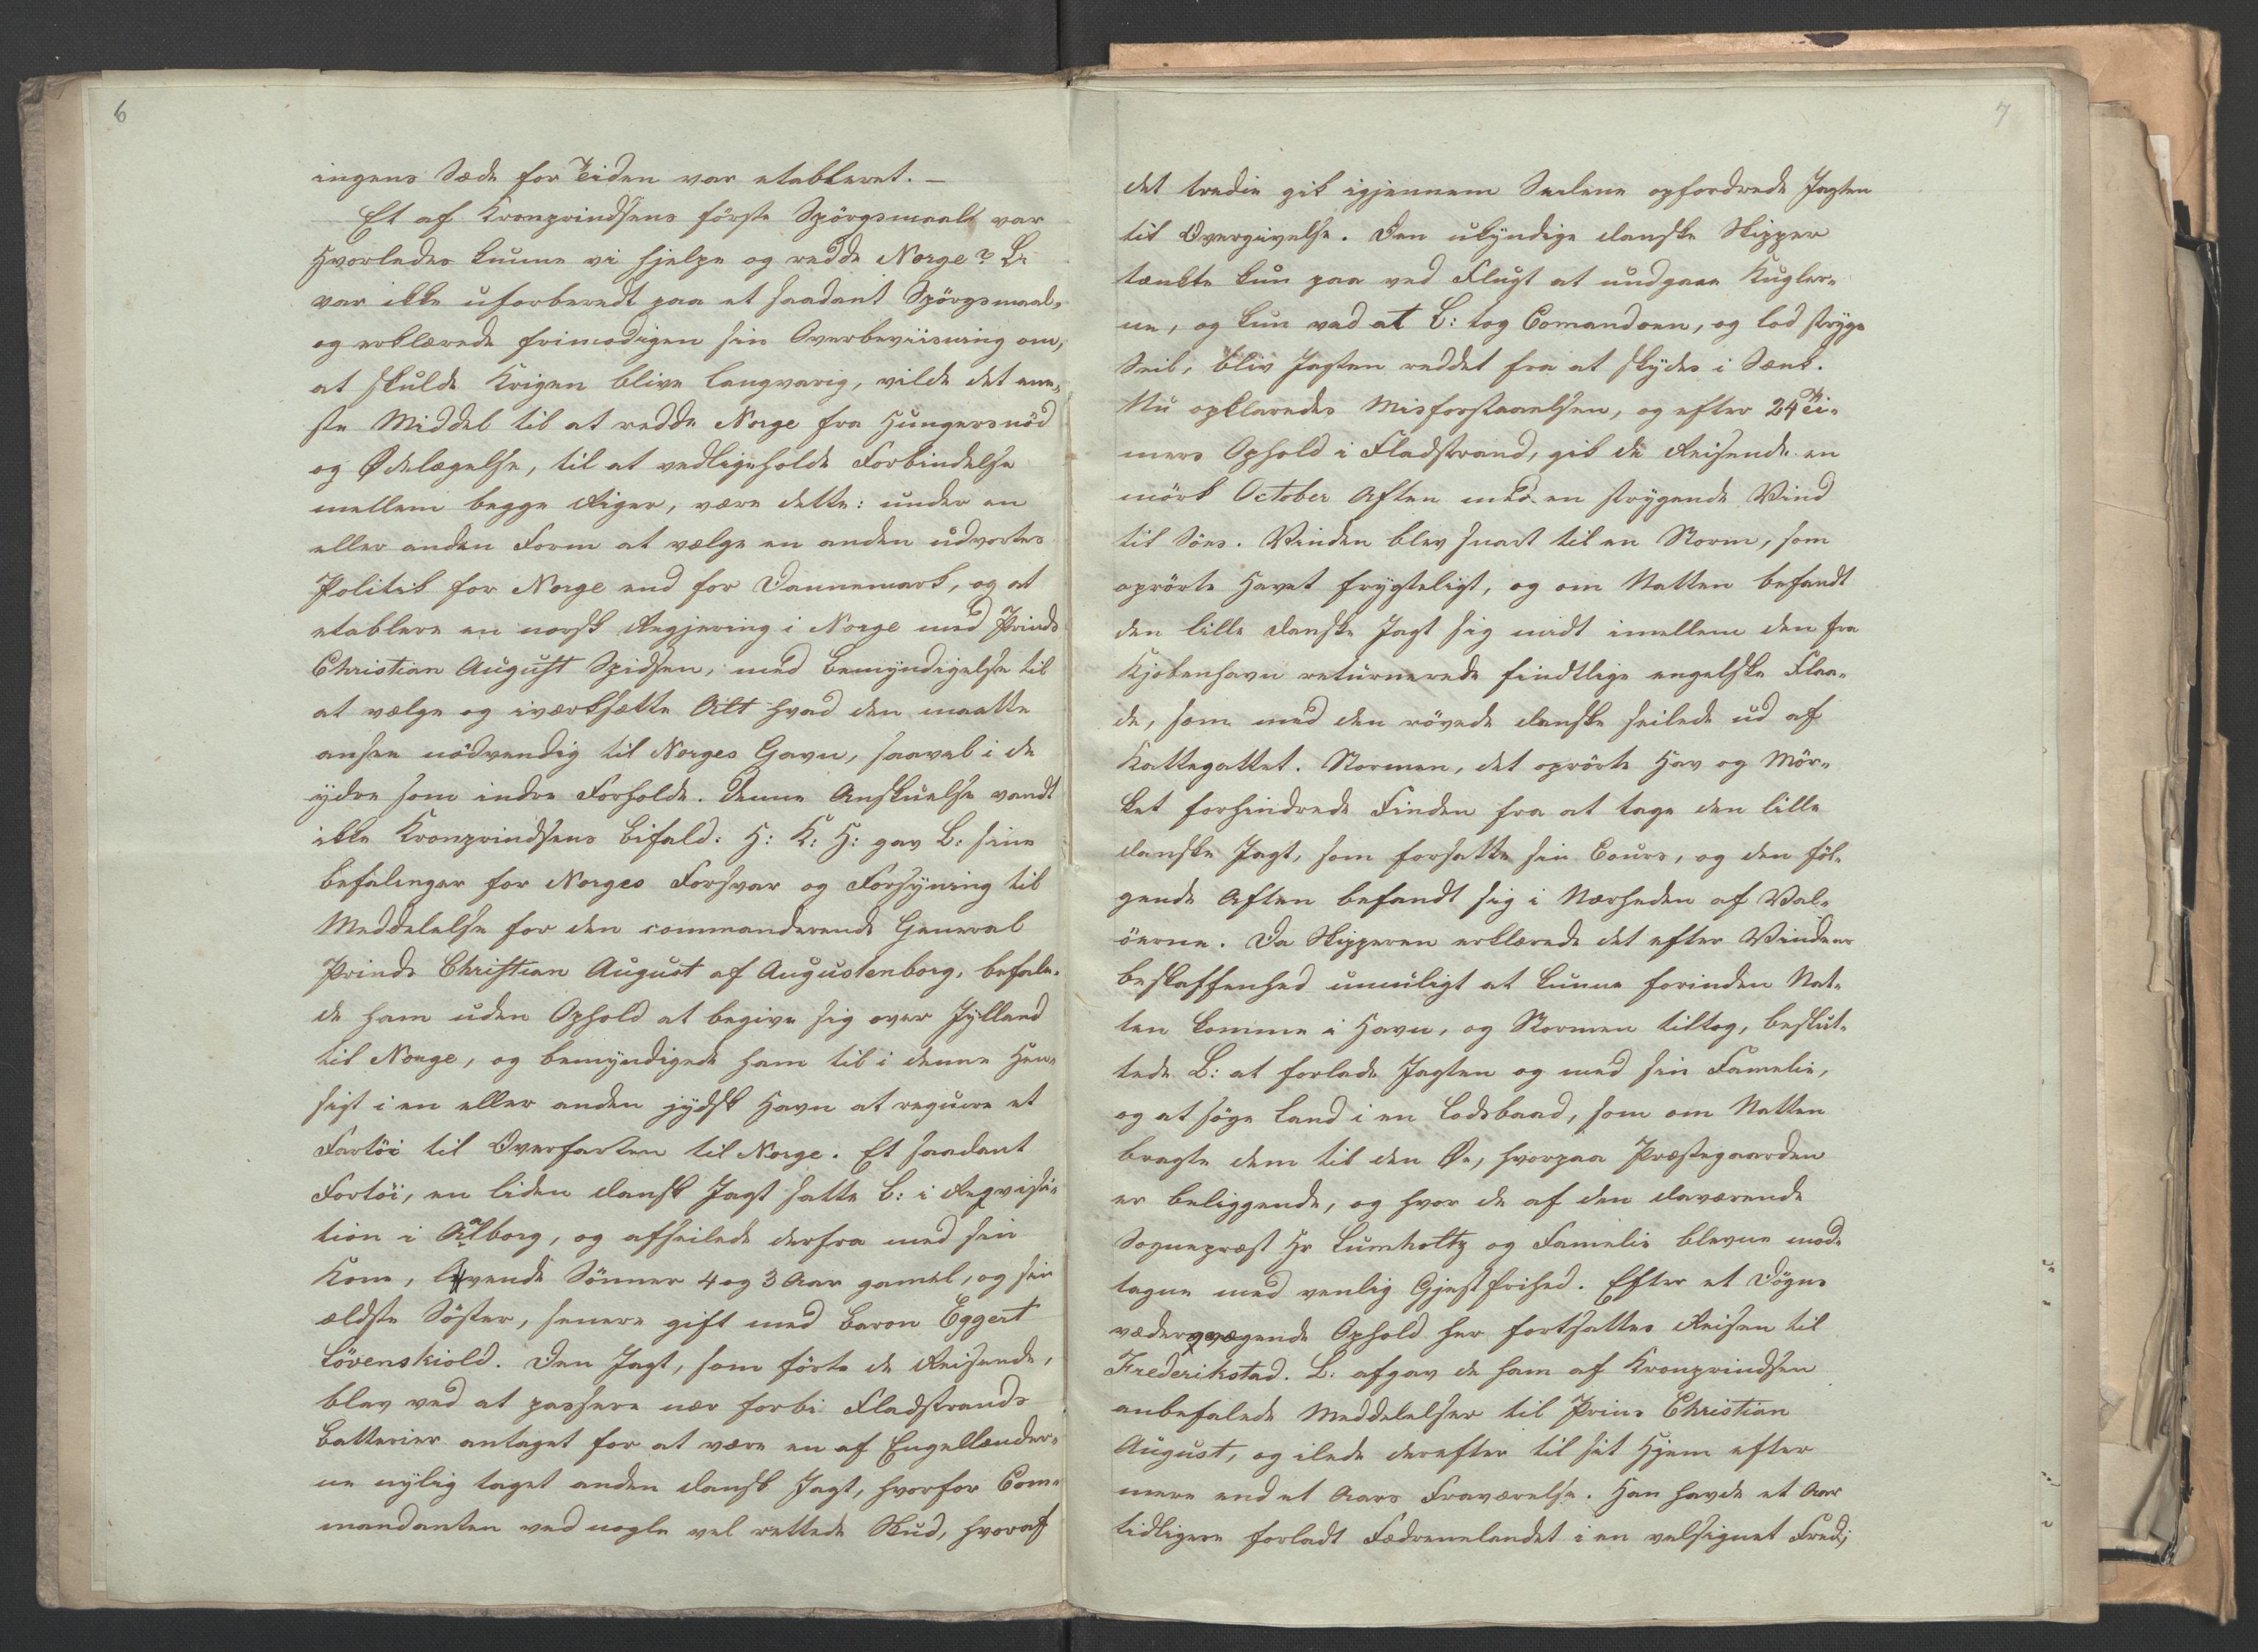 6
ingens Sæde for Tiden var etableret. —
Et af Kronprindsens förste Spörgsmaale var
Hvorledes kunne vi hjelpe og redde Norge? L:
var ikke uforberedt paa et saadant Spörgsmaal,
og erklærede frimodigen sin Overbeviisning om,
at skulde Krigen blive langvarig, vilde det ene„
ste Middel til at redde Norge fra Hungersnöd
og Ødelægelse, til at vedligeholde Forbindelse
mellem begge Riger, være dette: under en
eller anden Form at vælge en anden udvortes
Politik for Norge end for Dannemark, og at
etablere en norsk Regjering i Norge med Prinds
Christian August Spidsen, med Bemyndigelse til
at vælge og iværksætte Alt hvad den maatte
ansee nödvendig til Norges Gavn, saavel i de
ydre som indre Forholde. Denne Anskuelse vandt
ikke Kronprindsens Bifald: H: K: H: gav L: sine
Befalinger for Norges Forsvar og Forsyning til
Meddelelse for den commanderende General
Prinds Christian August af Augustenborg, befale„
de ham uden Ophold at begive sig over Jylland
til Norge, og bemyndigede ham til i denne Hen„
sigt i en eller anden jydsk Havn at reqvire et
Fartöi til Overfarten til Norge. Et saadant
Fartöi, en liden dansk Jagt satte L: i Reqvisi„
tion i Alborg, og afseilede derfra med sin
Kone, tvende Sönner 4 og 3 Aar gamel, og sin
ældste Söster, senere gift med Baron Eggert
Lövenskiold. Den Jagt, som förte de Reisende,
blev ved at passere nær forbi Fladstrands
Batterier antaget for at være en af Engellænder„
ne nylig taget anden dansk Jagt, hvorfor Com„
mandanten ved nogle vel rettede Skud, hvoraf
7
det tredie gik igjennem Seilene opfordrede Jagten
til Overgivelse. Den ukyndige danske Skipper
tænkte kun paa ved Flugt at undgaae Kugler„
ne, og kun ved at L: tog Comandoen, og lod stryge
Seil, bliv Jagten reddet fra at skydes i Sænk.
Nu opklaredes Misforstaaelsen, og efter 24 Ti„
mers Ophold i Fladstrand, gik de Reisende en
mörk October Aften med en strygende Vind
til Söes. Vinden blev snart til en Storm, som
oprörte Havet frygteligt, og om Natten befandt
den lille danske Jagt sig midt imellem den fra
Kjobenhavn returnerede findtlige engelske Flaa„
de, som med den rövede danske seilede ud af
Kattegattet. Stormen, det oprörte Hav og Mör„
ket forhindrede Finden fra at tage den lille
danske Jagt, som forsatte sin Cours, og den föl„
gende Aften befandt sig i Nærheden af Val„
öerne. Da Skipperen erklærede det efter Vindens
Beskaffenhed umuligt at kunne forinden Nat„
ten komme i Havn, og Stormen tiltog, beslut„
tede L: at forlade Jagten og med sin Famelie,
og at söge Land i en Lodsbaad, som om Natten
bragte dem til den Øe, hvorpaa Præstegaarden
er beliggende, og hvor de af den daværende
Sognepræst Hr Lumholtz og Famelie blevne mod„
tagne med venlig Gjestfrihed. Efter et Dögns
vederqvægende Ophold her fortsattes Reisen til
Frederikstad. L. afgav de ham af Kronprindsen
anbefalede Meddelelser til Prins Christian
August, og ilede derefter til sit Hjem efter
mere end et Aars Fraværelse. Han havde et Aar
tidligere forladt Fædrenelandet i en velsignet Fred;